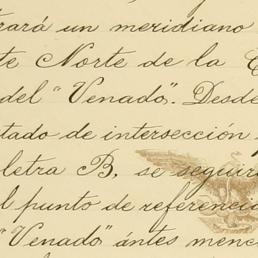 trará un meridiano
te Norte de la
del "Venado". Desde
tado de intersección
letra B, se seguirá
l punto de referencia
"Venado" ántes menc